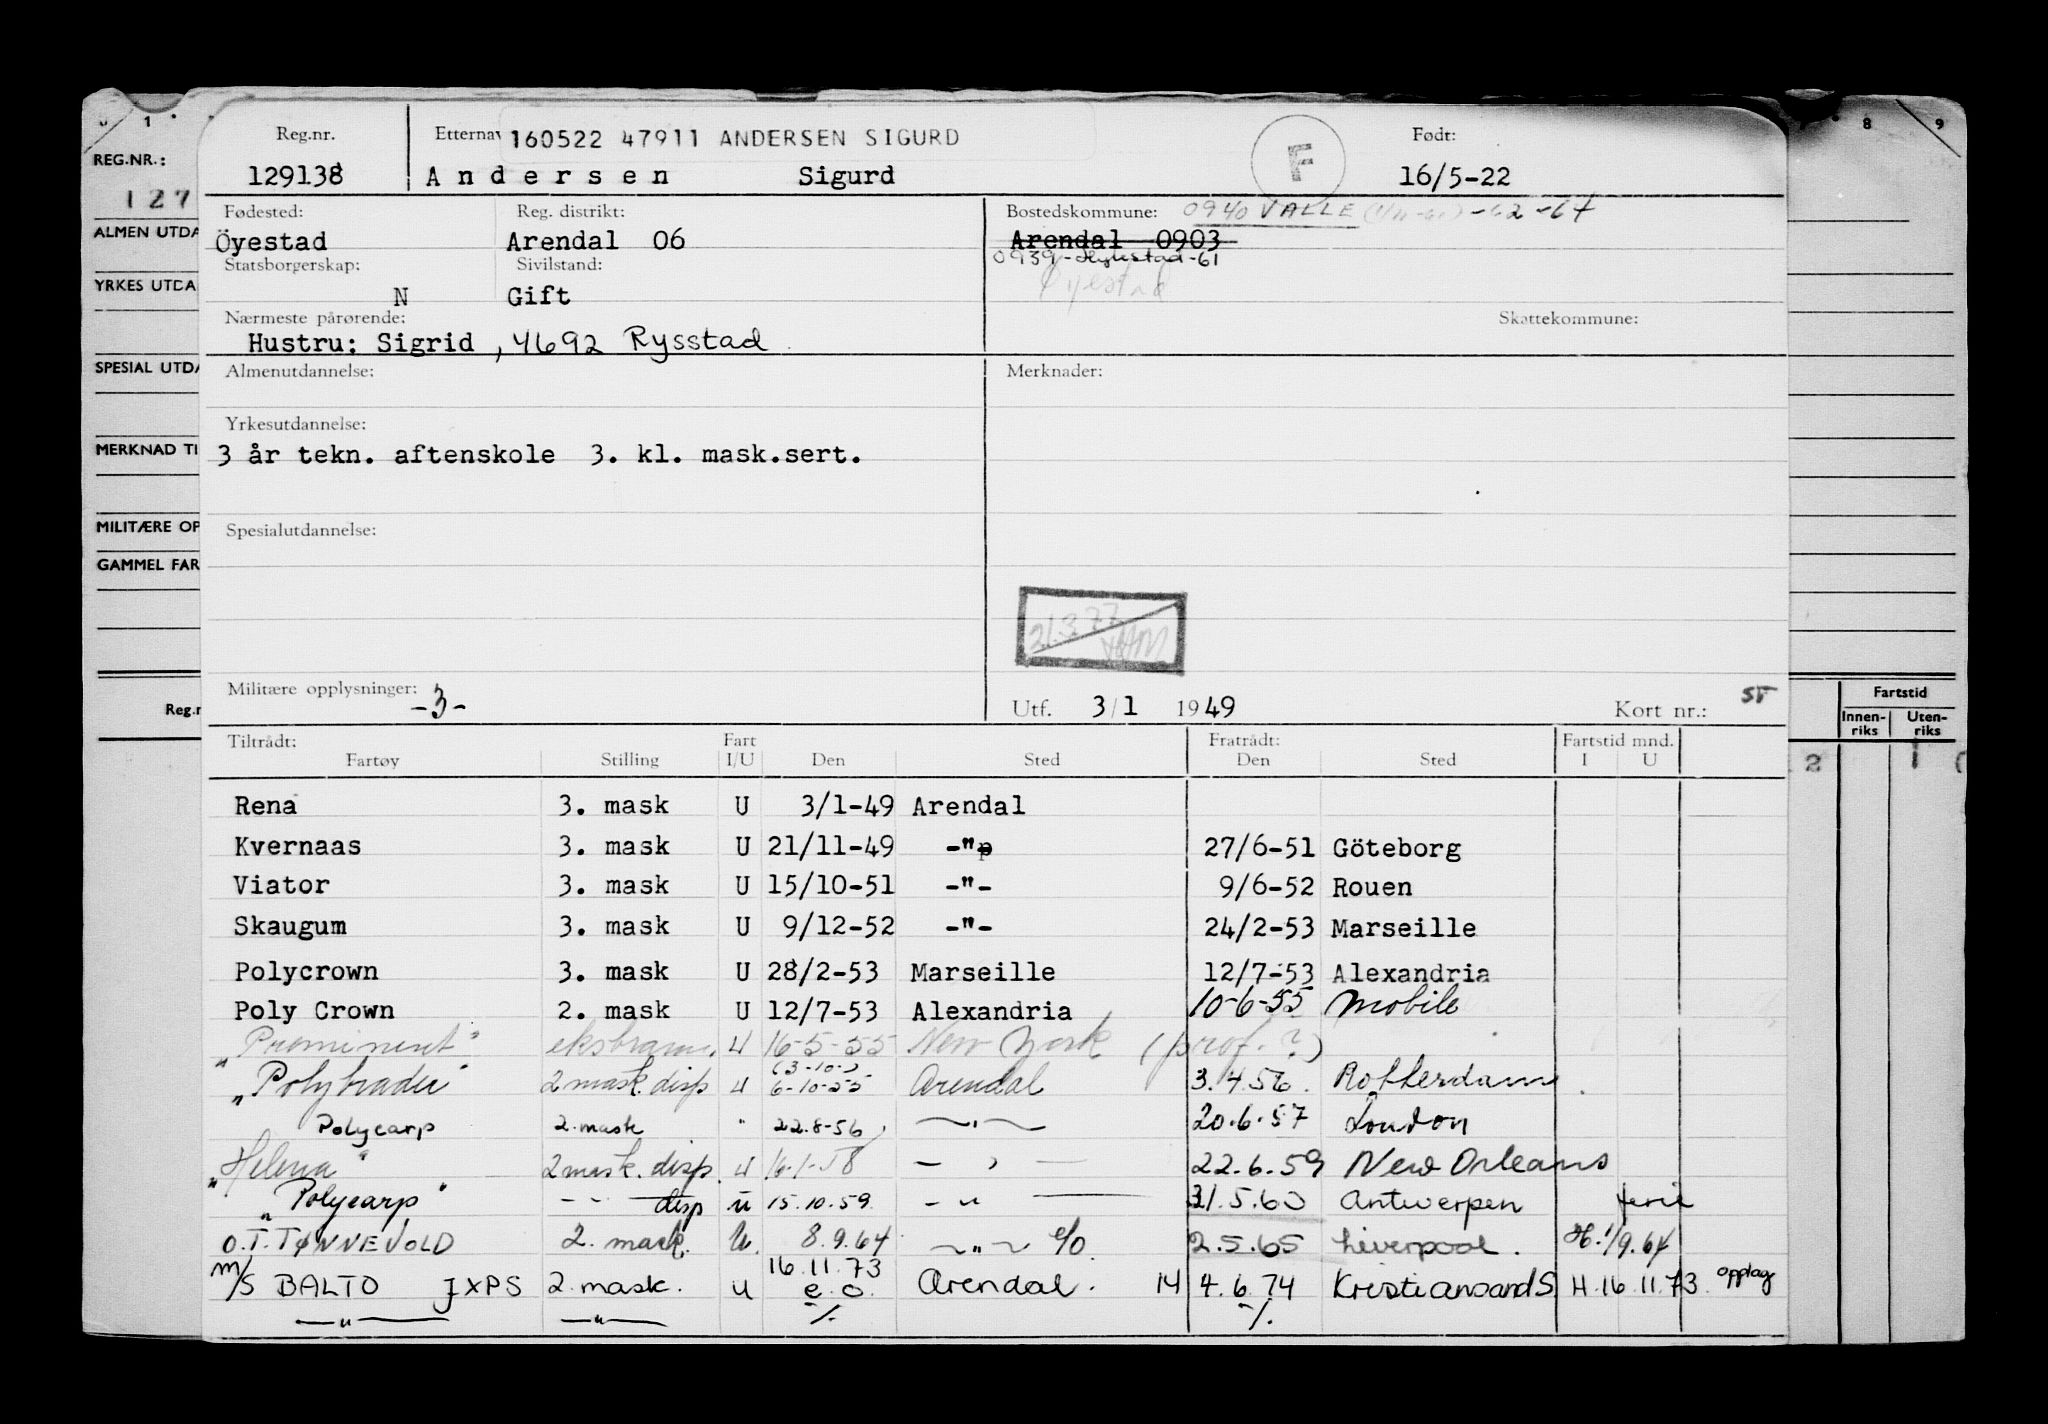 1 8 9
REG.NR.:
127
ALMEN UTDA
YRKES UTDA
SPESIAL UTDA
MERKNAD TI
MILITÆRE OP
GAMMEL FAR
Reg.r
Fartstid
Innen-riks Uten-riks
2 1
Reg.nr. Etternav 160522 47911 ANDERSEN SIGURD F Født:
129138 Andersen Sigurd 16/5-22
Fødested: Reg. distrikt: Bostedskommune: 0940 VALLE -62-64
Öyestad Arendal 06 Arendal 0903
Statsborgerskap: Sivilstand: 0939-Hylestad-61
N Gift Øyestad
Nærmeste pårørende: Skattekommune:
Hustru: Sigrid, 4692 Rysstad
Almenutdannelse: Merknader:
Yrkesutdannelse:
3 år tekn. aftenskole 3. kl. mask.sert.
Spesialutdannelse:
21.3.77
Militære opplysninger: -3- Utf. 3/1 1949 Kort nr.: ST
Tiltrådt: Fart Fratrådt: Fartstid mnd.
Fartøy Stilling I/U Den Sted Den Sted I U
Rena 3. mask U 3/1-49 Arendal
Kvernaas 3. mask U 21/11-49 -"p 27/6-51 Göteborg
Viator 3. mask U 15/10-51 -"- 9/6-52 Rouen
Skaugum 3. mask U 9/12-52 -"- 24/2-53 Marseille
Polycrown 3. mask U 28/2-53 Marseille 12/7-53 Alexandria
Poly Crown 2. mask U 12/7-53 Alexandria 10-6-55 Mobile
"Prominent" U 16-5-55 New York (prof.?)
"Polytrader" 2 mask. disp U (3-10-) 6-10-55 Arendal 3.4.56. Rotterdam
Polycarp 2. mask " 22.8-56 —"— 20.6.57 London
"Helena" 2 mask. disp. U 16-1-58 — " — 22.6.59 New Orleans
"Polycarp" — " — disp U 15.10.59 — " — 31.5.60 Antwerpen ferie
O.T. TØNNEVOLD 2. mask. U. 8.9.64 —"— e/o 2.5.65 Liverpool. H.1/9.64
M/S BALTO JXPS 2. mask. U 16.11.73 e.o. Arendal. 14 4.6.74 Kristiansand S H.16.11.73. opplag
—"— —"— -/. -/.